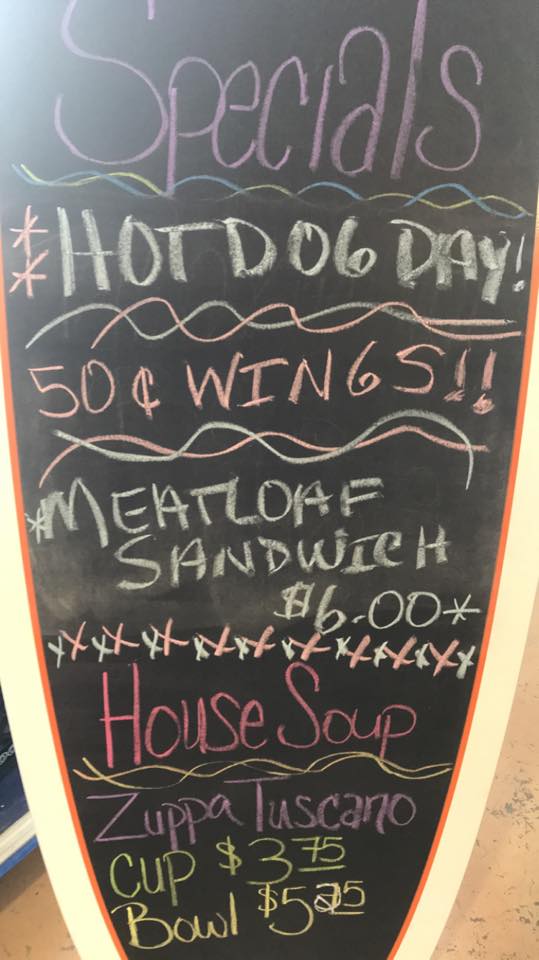 Specials
** HOT DOG DAY!
50¢ WINGS!!
*MEATLOAF
SANDWICH
$6.00*
House Soup
Zuppa Tuscano
Cup $3.75
Bowl $5.25